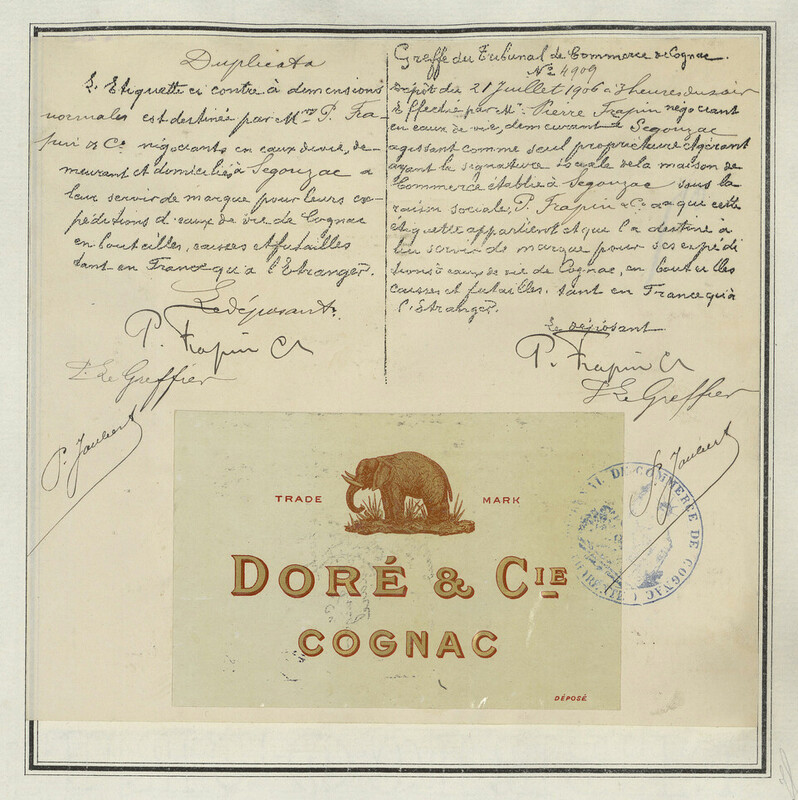 Duplicata
L'Etiquette ci contre à dimensions
normales est destinée par Mrs P. Fra-
pin & Co négociants en eaux de vie, de-
meurant et domiciliés à Segonzac a
leur servir de marque pour leurs ex-
péditions d'eaux de vie de Cognac
en bouteilles, caisses et futailles
tant en France qu'à l'Etranger.
Le déposant.
P. Frapin Co
Le Greffier
P. Jaubert
Greffe du Tribunal de Commerce de Cognac.
No 4909
Dépôt du 21 Juillet 1906 à 3 heures du soir
Effectué par Mr Pierre Frapin négociant
en eaux de vie, demeurant à Segonzac
agissant comme seul propriétaire et gérant
ayant la signature sociale de la maison de
Commerce établie à Segonzac sous la
raison sociale, P. Frapin & Co à que cette
étiquette appartient et qui l'a destiné à
lui servir de marque pour ses expédi
tions d'eaux de vie de Cognac, en bouteilles
caisses et futailles, tant en France qu'à
l'Etranger.
Le déposant
P. Frapin Co
Le Greffier
P. Jaubert
TRADE MARK
DORÉ & CIE
COGNAC
DÉPOSÉ
TRIBUNAL DE COMMERCE DE COGNAC (CHARENTE)